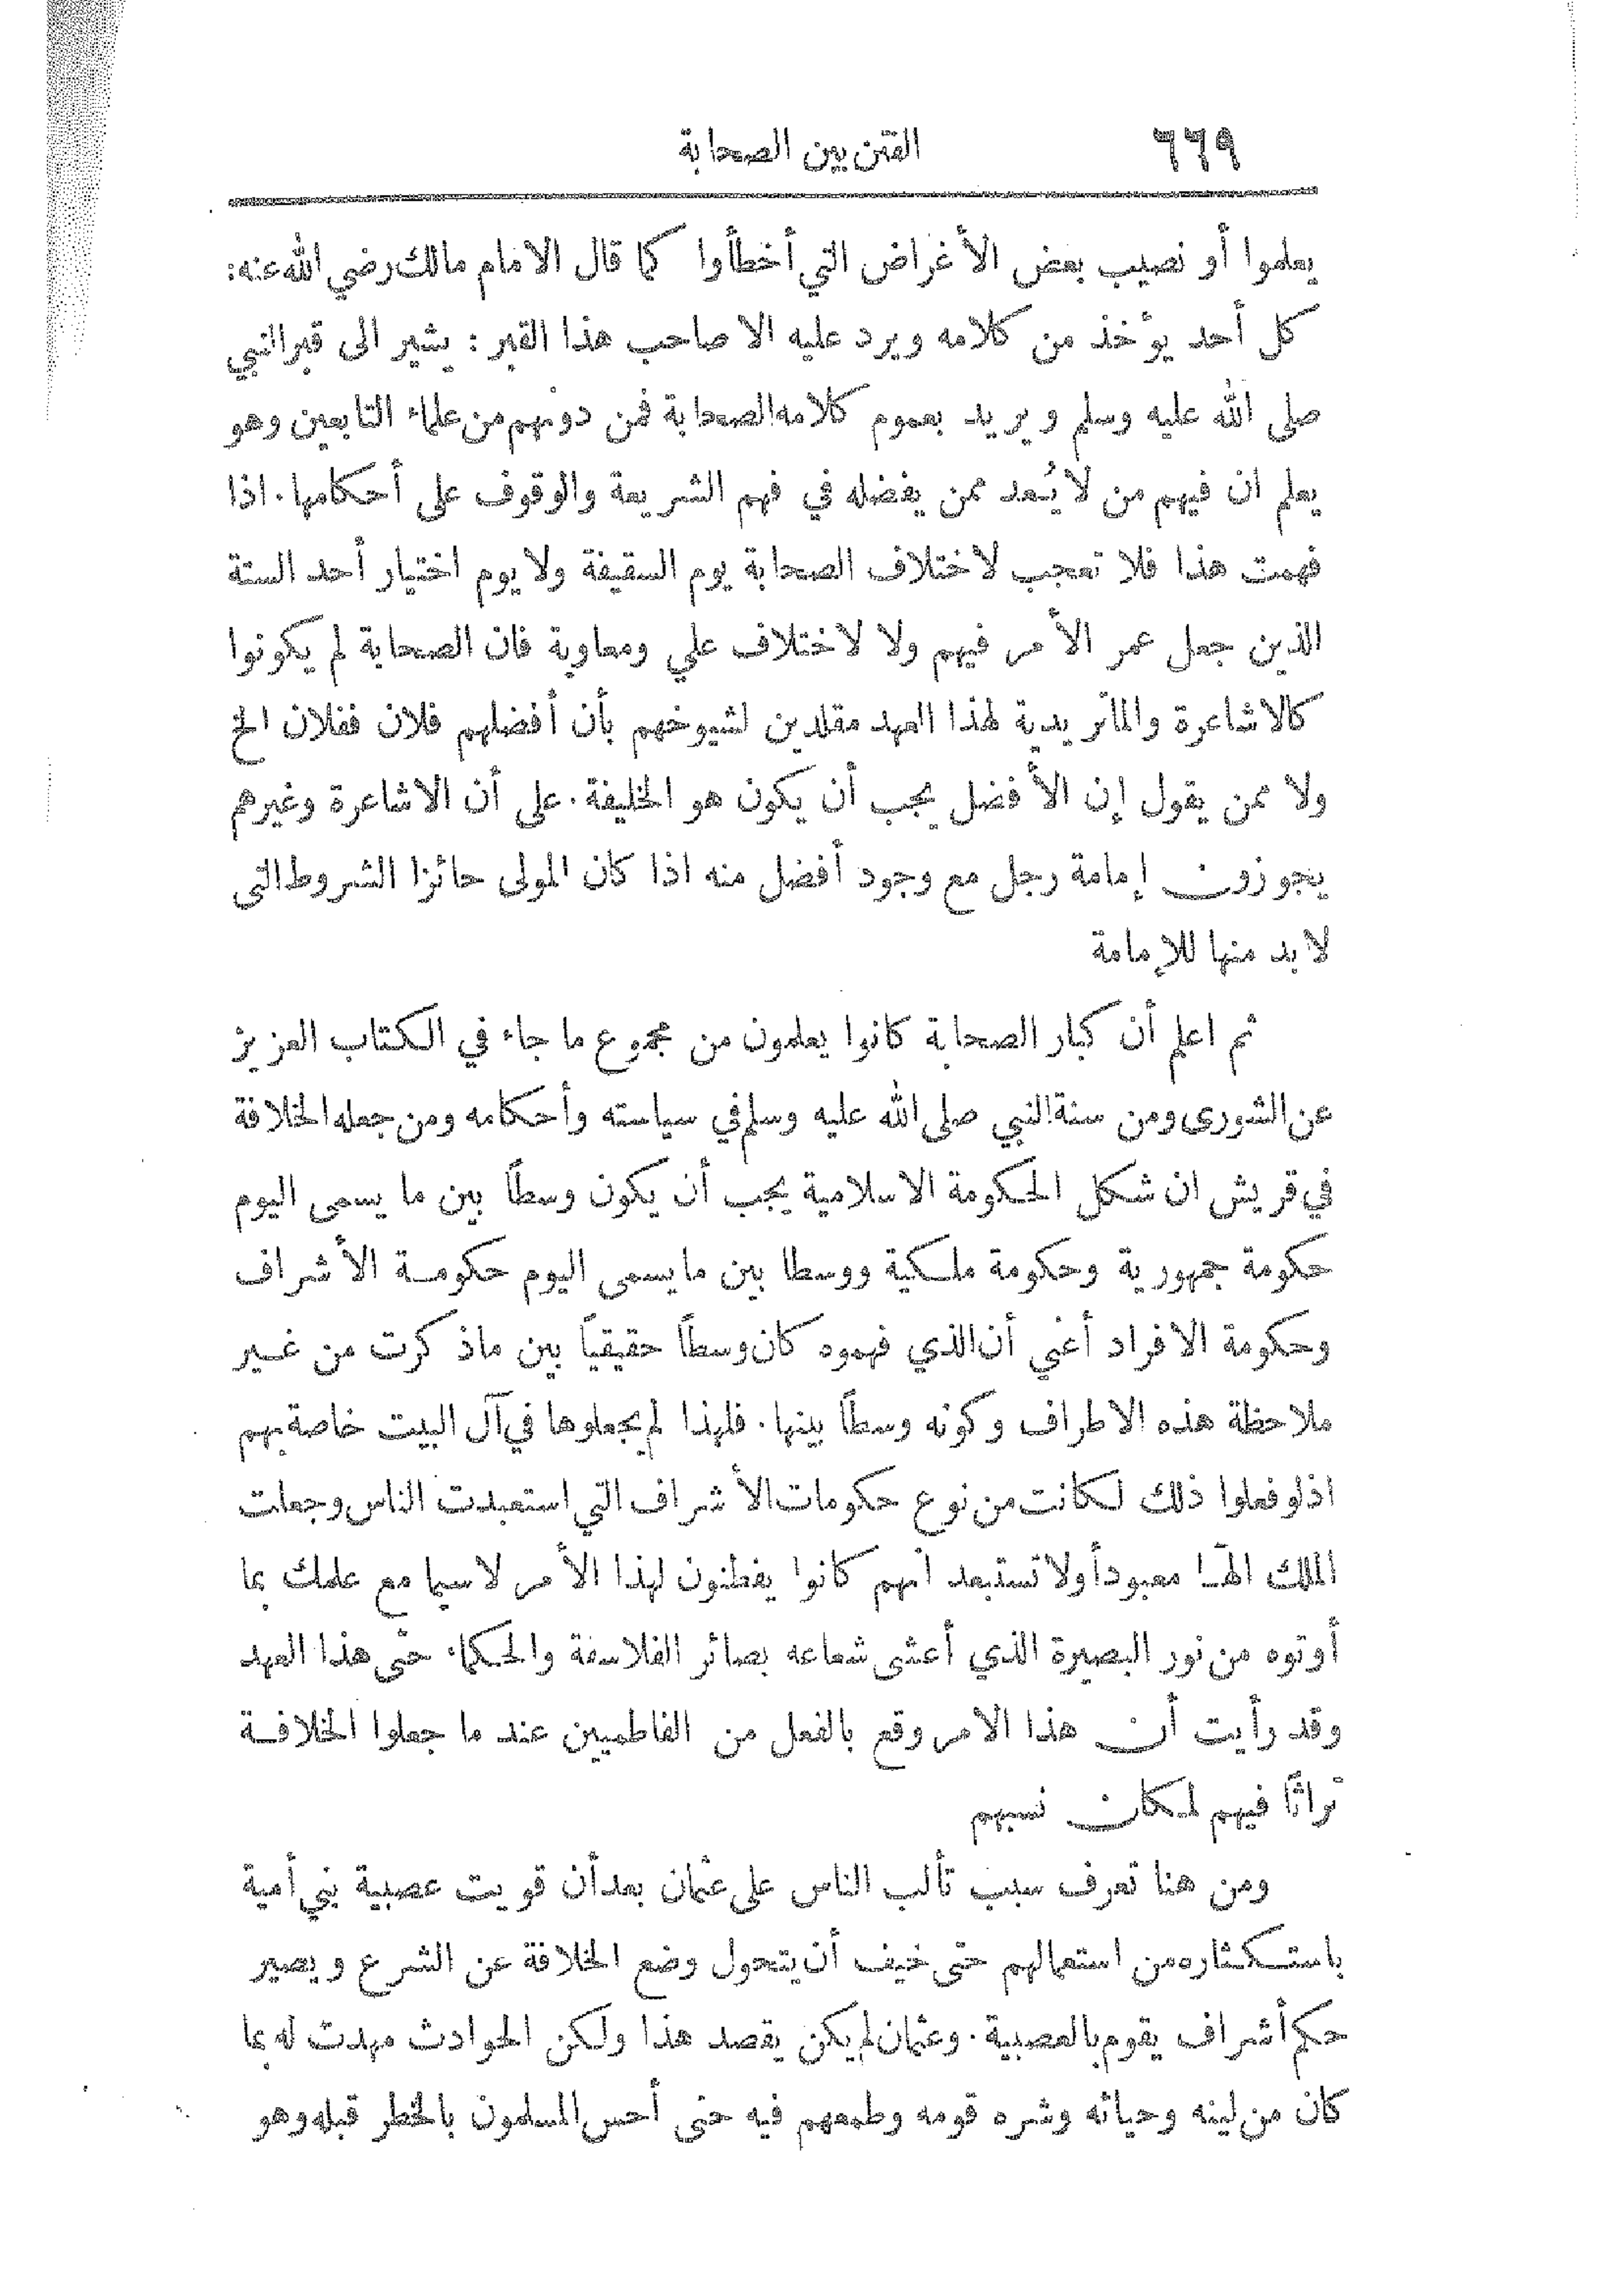 ٦٦٩ الفتن بين الصحابة
يعلموا أو نصيب بعض الأغراض التي أخطأوا كما قال الامام مالك رضي الله عنه:
كل أحد يؤخذ من كلامه ويرد عليه الا صاحب هذا القبر : يشير الى قبر النبي
صلى الله عليه وسلم ويريد بعموم كلامه الصحابة فمن دونهم من علماء التابعين وهو
يعلم ان فيهم من لا يُعد ممن يفضله في فهم الشريعة والوقوف على أحكامها . اذا
فهمت هذا فلا تعجب لاختلاف الصحابة يوم السقيفة ولا يوم اختيار أحد الستة
الذين جعل عمر الأمر فيهم ولا لاختلاف علي ومعاوية فان الصحابة لم يكونوا
كالاشاعرة والماتريدية لهذا العهد مقلدين لشيوخهم بأن أفضلهم فلان ففلان الخ
ولا ممن يقول إن الأفضل يجب أن يكون هو الخليفة . على أن الاشاعرة وغيرهم
يجوزون إمامة رجل مع وجود أفضل منه اذا كان المولى حائزا الشروط التي
لابد منها للإمامة
ثم اعلم أن كبار الصحابة كانوا يعلمون من مجموع ما جاء في الكتاب العزيز
عن الشورى ومن سنة النبي صلى الله عليه وسلم في سياسته وأحكامه ومن جعله الخلافة
في قريش ان شكل الحكومة الاسلامية يجب أن يكون وسطاً بين ما يسمى اليوم
حكومة جمهورية وحكومة ملكية ووسطا بين ما يسمى اليوم حكومة الأشراف
وحكومة الافراد أعني أن الذي فهموه كان وسطاً حقيقياً بين ماذكرت من غير
ملاحظة هذه الاطراف وكونه وسطاً بينها . فلهذا لم يجعلوها في آل البيت خاصة بهم
اذ لو فعلوا ذلك لكانت من نوع حكومات الأشراف التي استعبدت الناس وجعلت
الملك الهـًا معبوداً ولا تستبعد انهم كانوا يفطنون لهذا الأمر لا سيما مع علمك بما
أوتوه من نور البصيرة الذي أعشى شعاعه بصائر الفلاسفة والحكماء حتى هذا العهد
وقد رأيت أن هذا الامر وقع بالفعل من الفاطميين عند ما جعلوا الخلافة
تراثاً فيهم لمكان نسبهم
ومن هنا تعرف سبب تألب الناس على عثمان بعد أن قويت عصبية بني أمية
باستكثاره من استعمالهم حتى خيف أن يتحول وضع الخلافة عن الشرع ويصير
حكم أشراف يقوم بالعصبية . وعثمان لم يكن يقصد هذا ولكن الحوادث مهدت له بما
كان من لينه وحيائه وشره قومه وطمعهم فيه حتى أحس المسلمون بالخطر قبله وهو